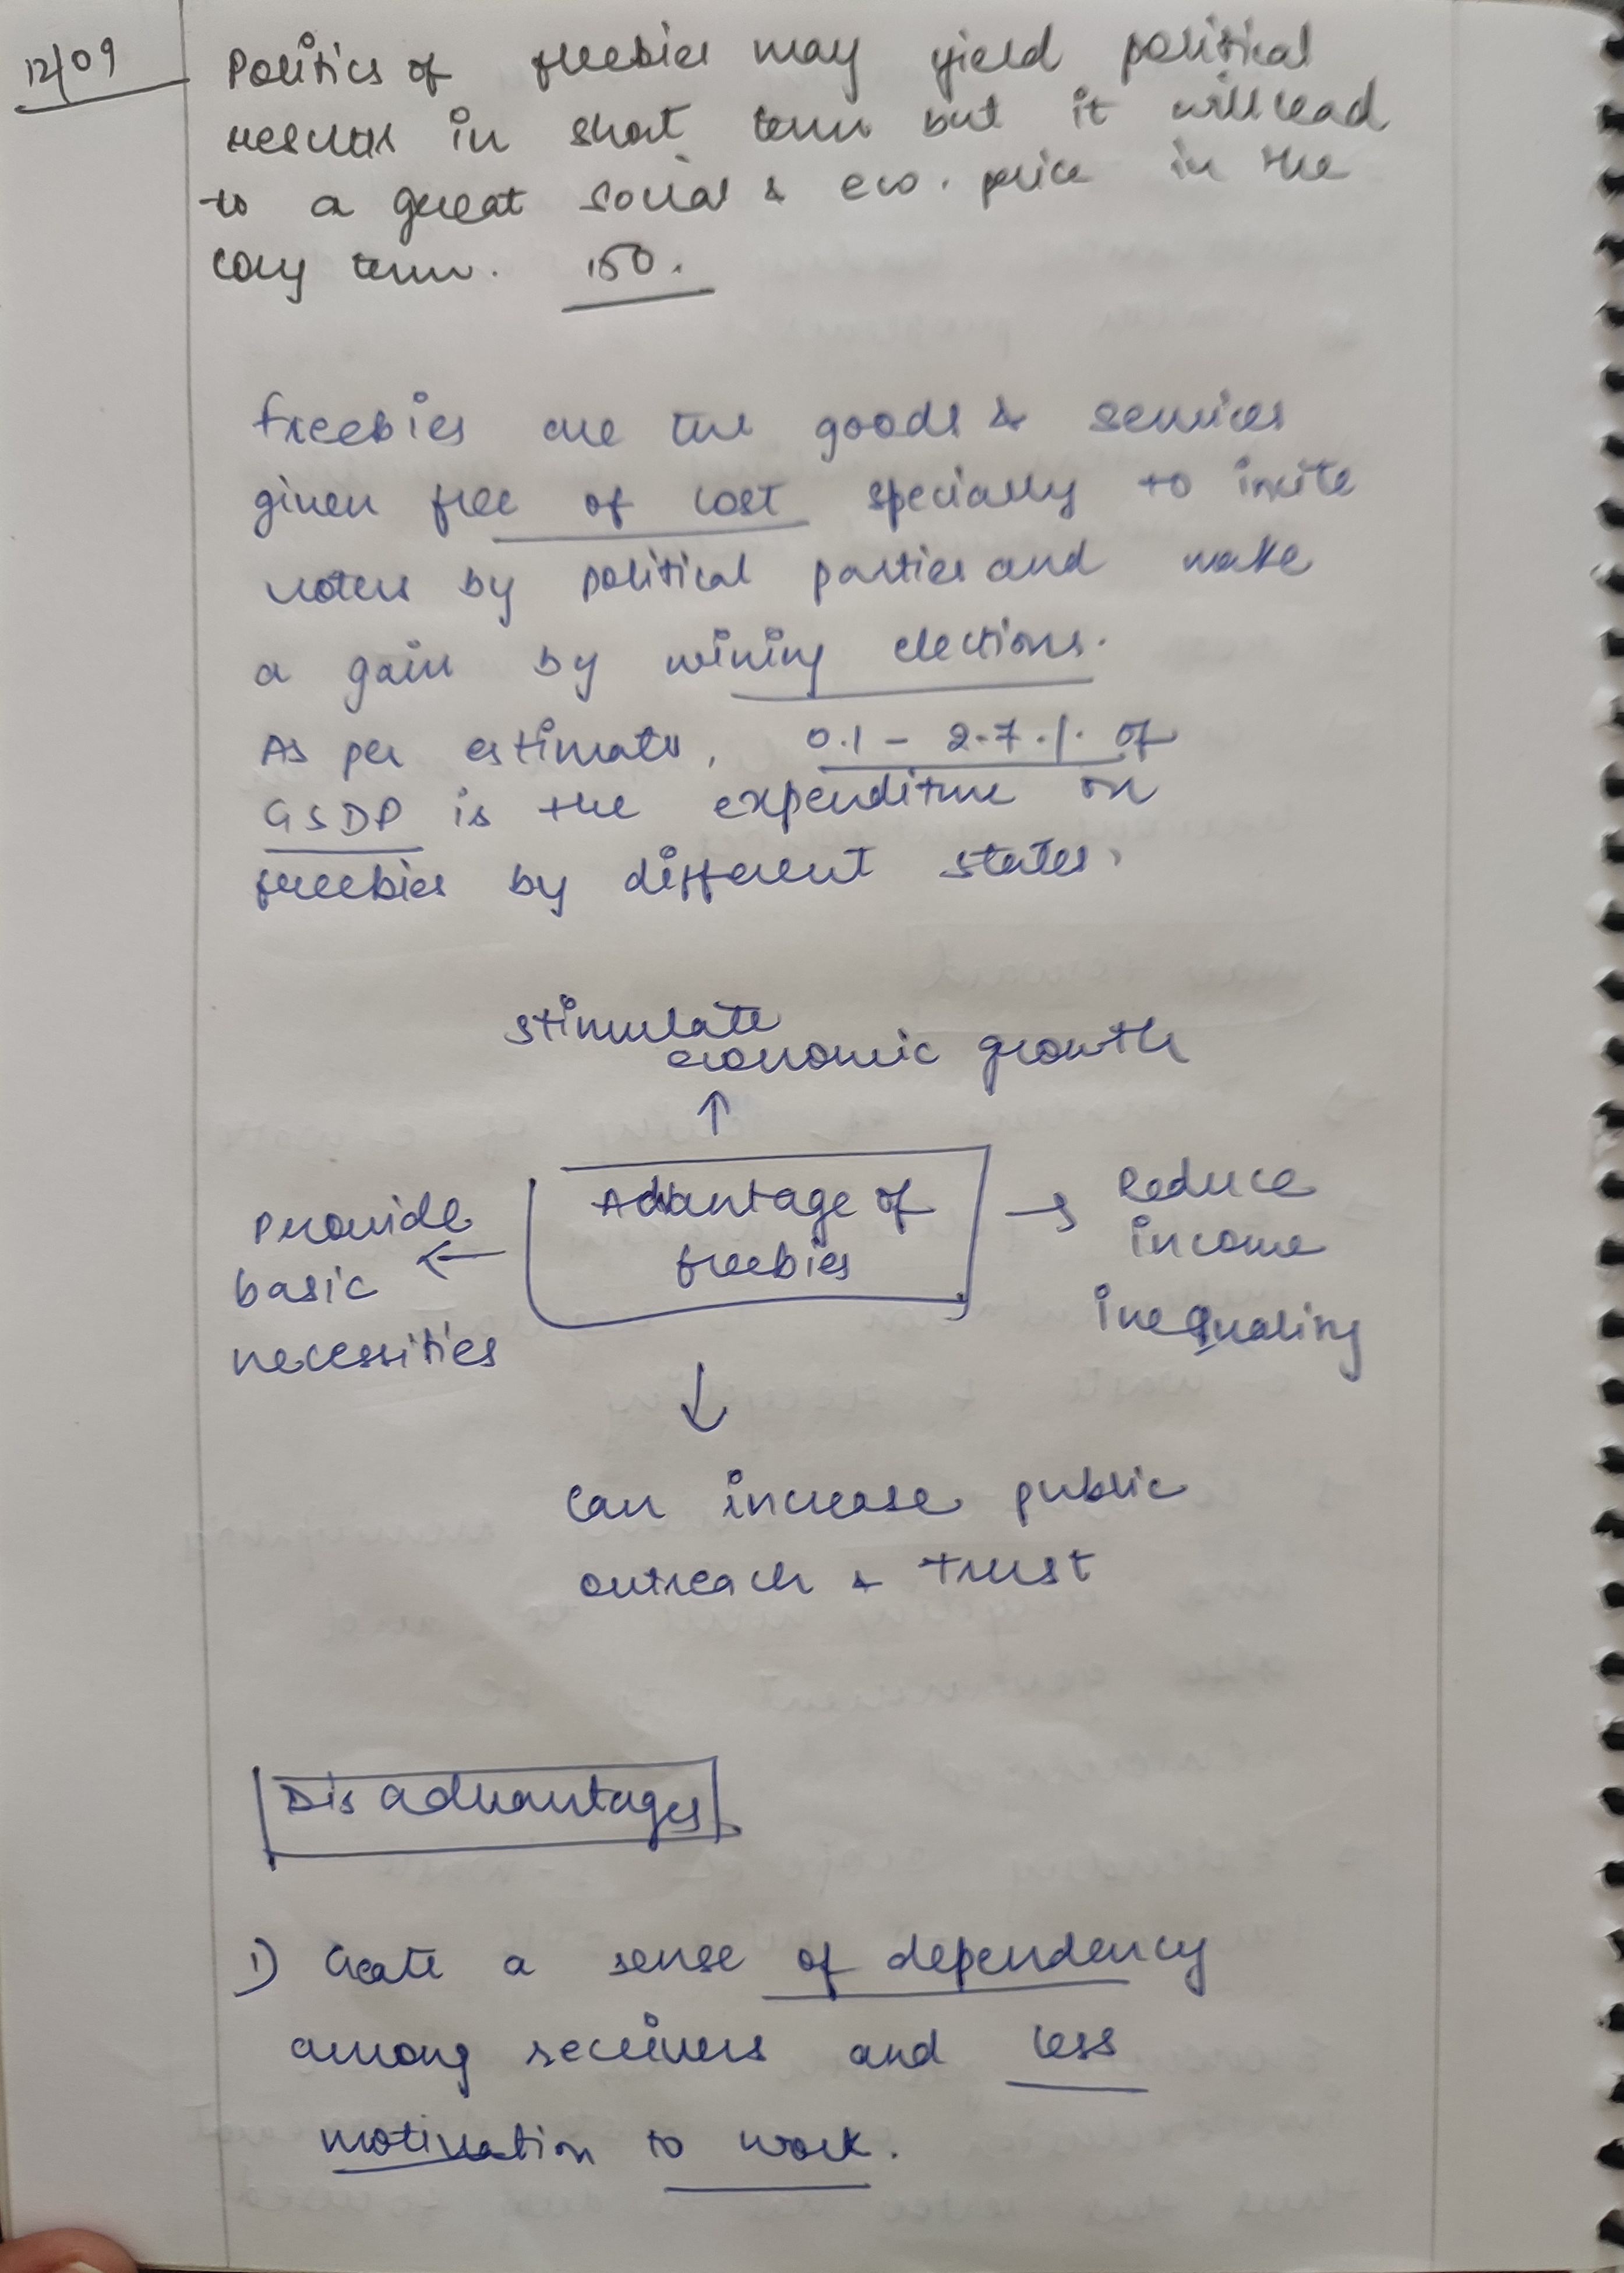 12/09
Politics of freebies may yield political
results in short term but it will lead
to a great social & eco. price in the
long term. 150.
Freebies are the goods & services
given free of cost specially to incite
voters by political parties and make
a gain by wining elections.
As per estimates, 0.1 - 2.7 % of
GSDP is the expenditure on
freebies by different states.
Stimulate
economic growth
↑
Advantage of
freebies
← Provide
basic
necessities
→ Reduce
income
inequality
↓
Can increase public
outreach & trust
Disadvantages
1) Create a sense of dependency
among receivers and less
motivation to work.